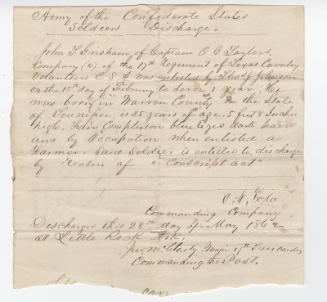 Army of the Confederate States
Soldiers Discharge.
John T Grisham of Captain O C Taylors
Company (D) of the 17th Regiment of Texas Cavalry
Volunteers C S A was enlisted by Johnson
on the 15th day of February to serve 1 year. He
was born in Warren County in the state
of Tennessee is 35 years of age 5 feet 8 inches
high, Fair Complexion Blue Eyes Dark hair
and by occupation when enlisted a
Farmer Said Soldier is entitled to discharge
by reason of Conscript Act
O. C. Taylor
Commanding Company
Discharged this 28th day of May 1862
at Little Rock Ark
McClarty Major 17th Cavalry
Commanding the Post.